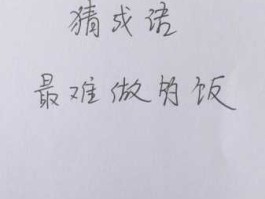 猜成语
最难做的饭